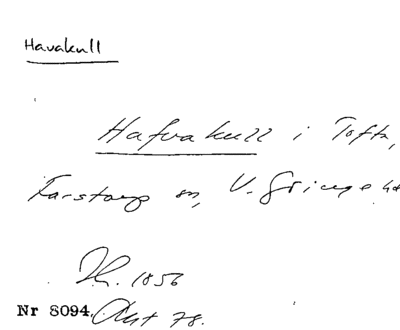 Havakull
Hafvakull i Tofta,
Farstorp sn, V. Göinge hd
Nr 8094. Akt 78.